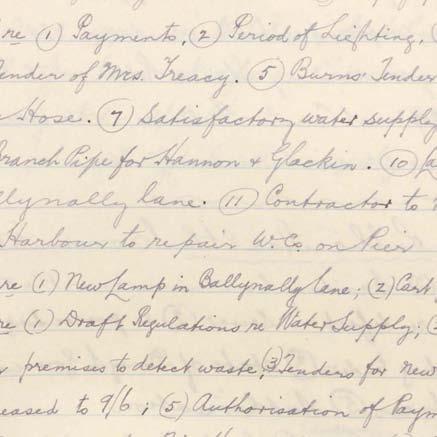 re (1) Payments, (2) Period of Lighting,
Tender of Mrs. Treacy. (5) Burns' Tender
Hose. (7) Satisfactory water supply
Branch Pipe for Hannon & Glackin. (10)
lynally lane. (11) Contractor to
Harbour to repair W.Cs. on Pier
re (1) New Lamp in Ballynally lane; (2) Cart
re (1) Draft Regulations re Water Supply;
premises to detect waste; (3) Tenders for new
eased to 9/6; (5) Authorisation of Paym